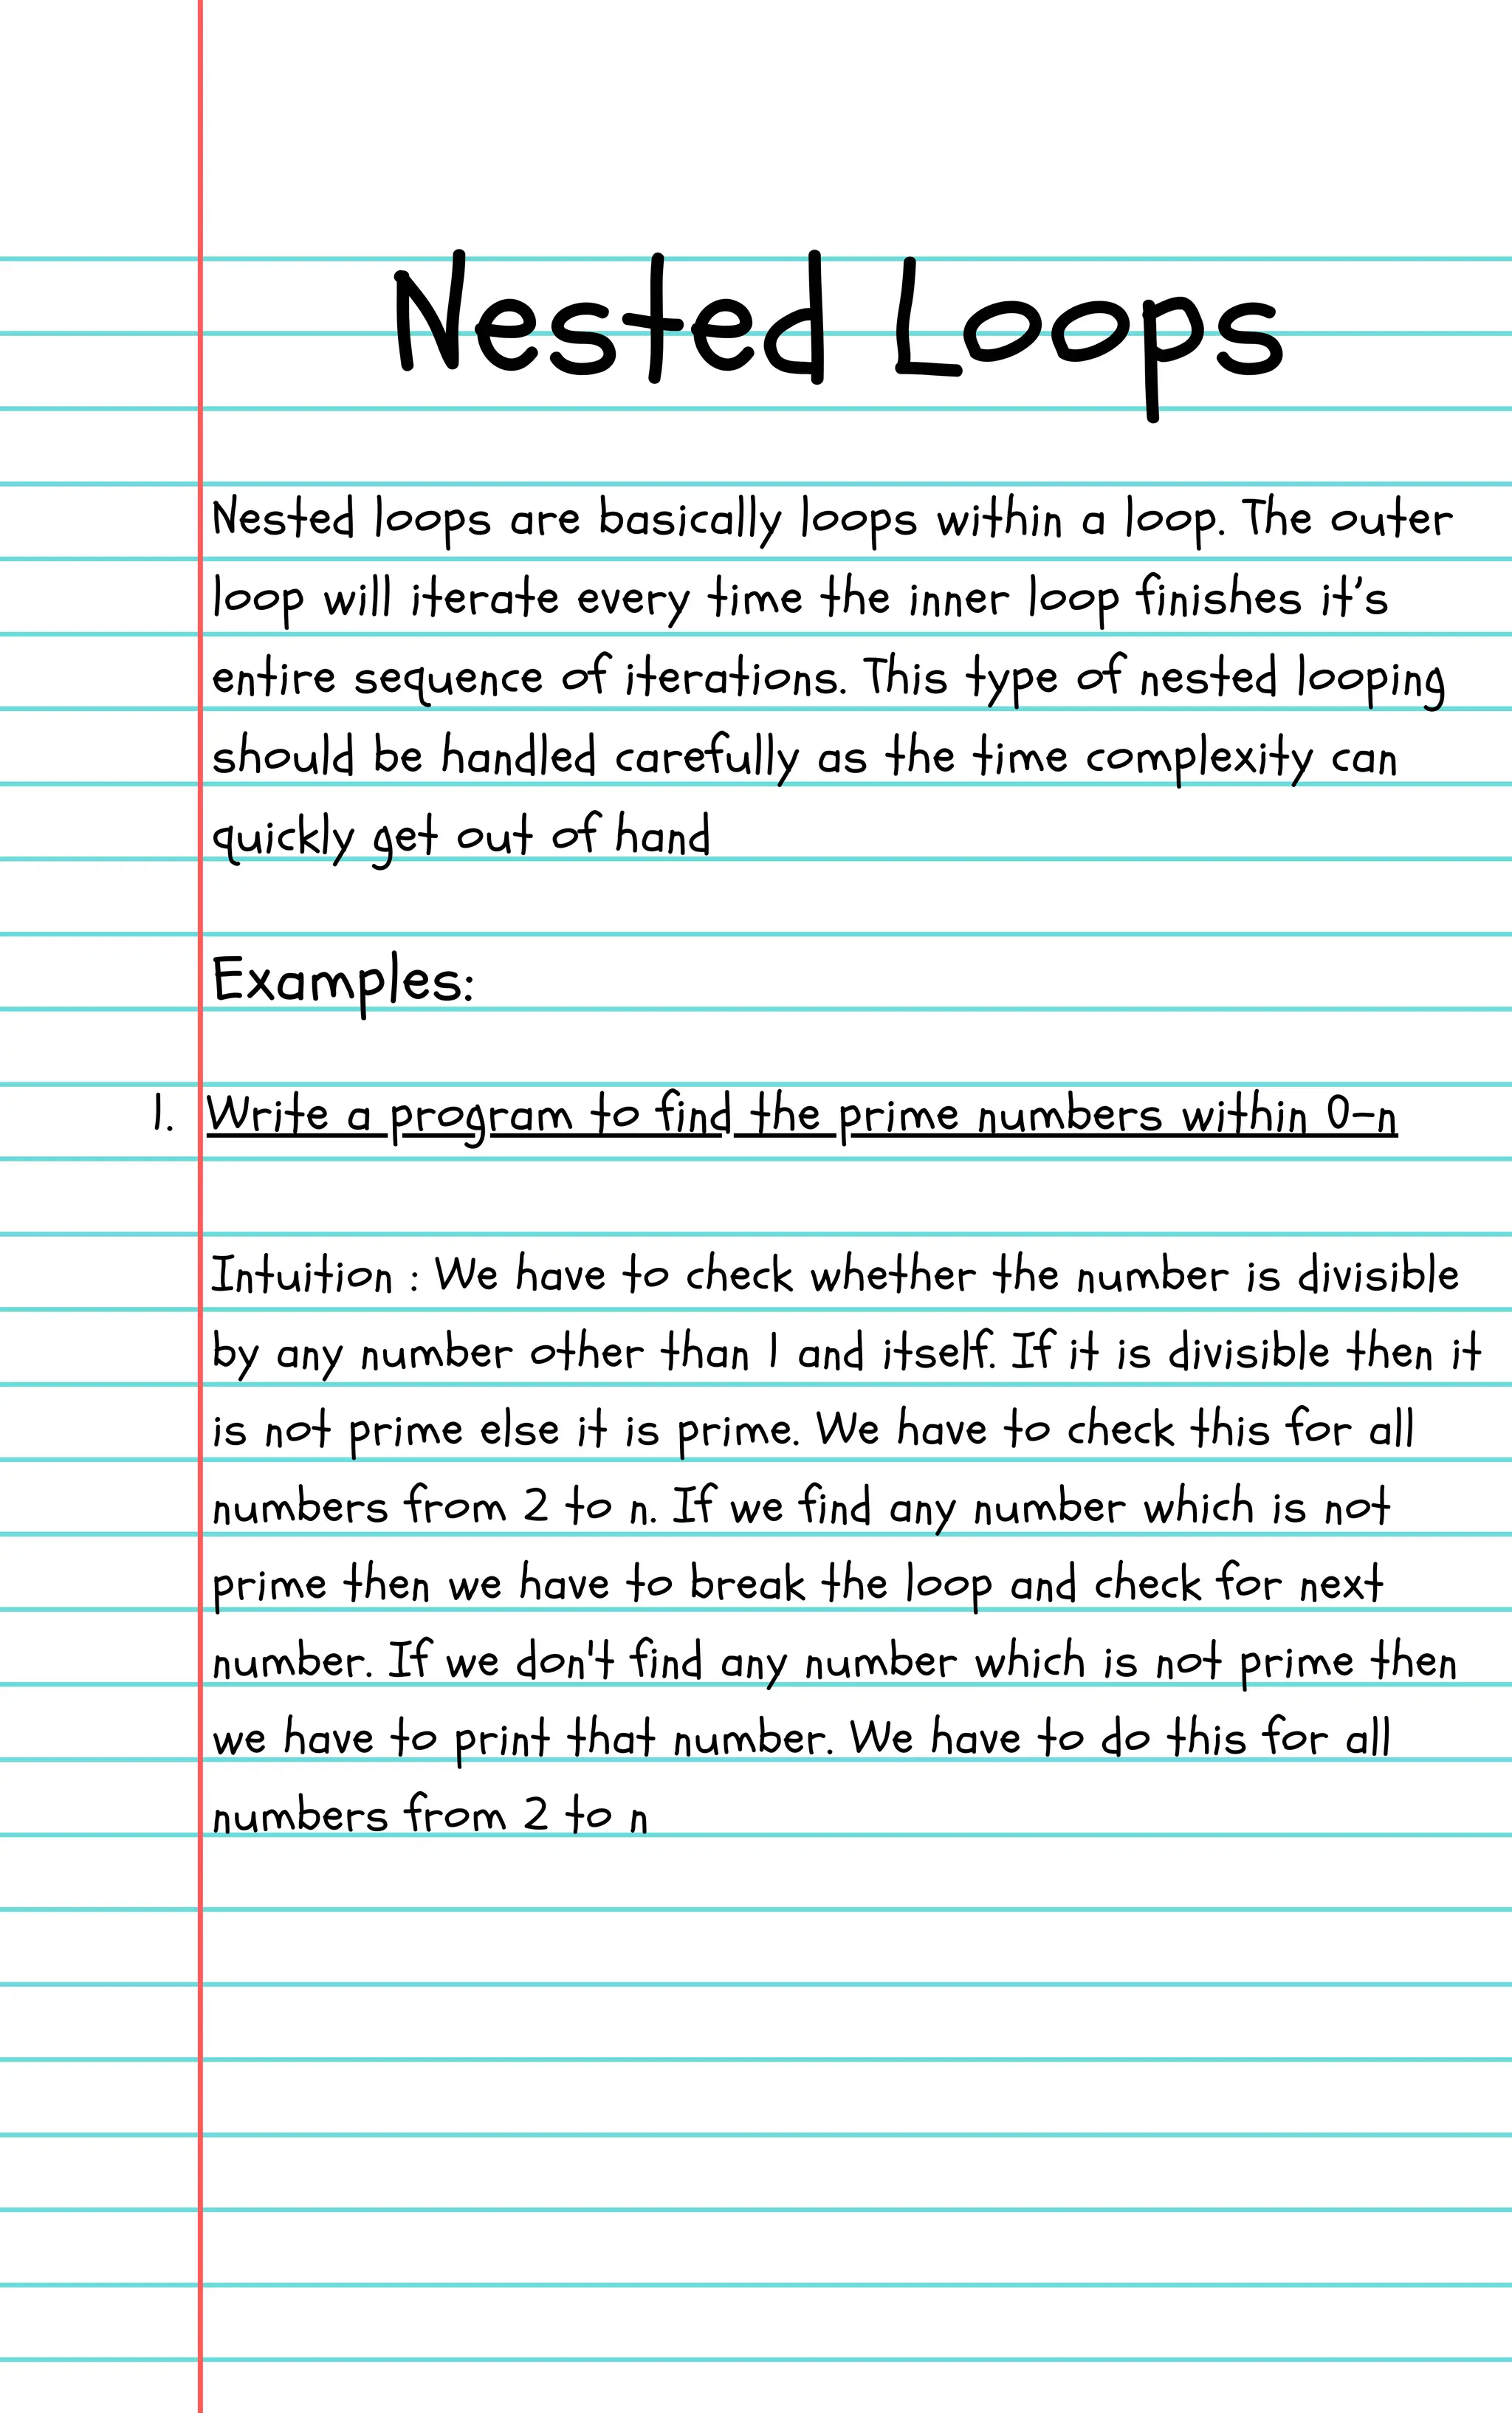 Nested Loops
Nested loops are basically loops within a loop. The outer
loop will iterate every time the inner loop finishes it's
entire sequence of iterations. This type of nested looping
should be handled carefully as the time complexity can
quickly get out of hand
Examples:
1. Write a program to find the prime numbers within 0-n
Intuition : We have to check whether the number is divisible
by any number other than 1 and itself. If it is divisible then it
is not prime else it is prime. We have to check this for all
numbers from 2 to n. If we find any number which is not
prime then we have to break the loop and check for next
number. If we don't find any number which is not prime then
we have to print that number. We have to do this for all
numbers from 2 to n